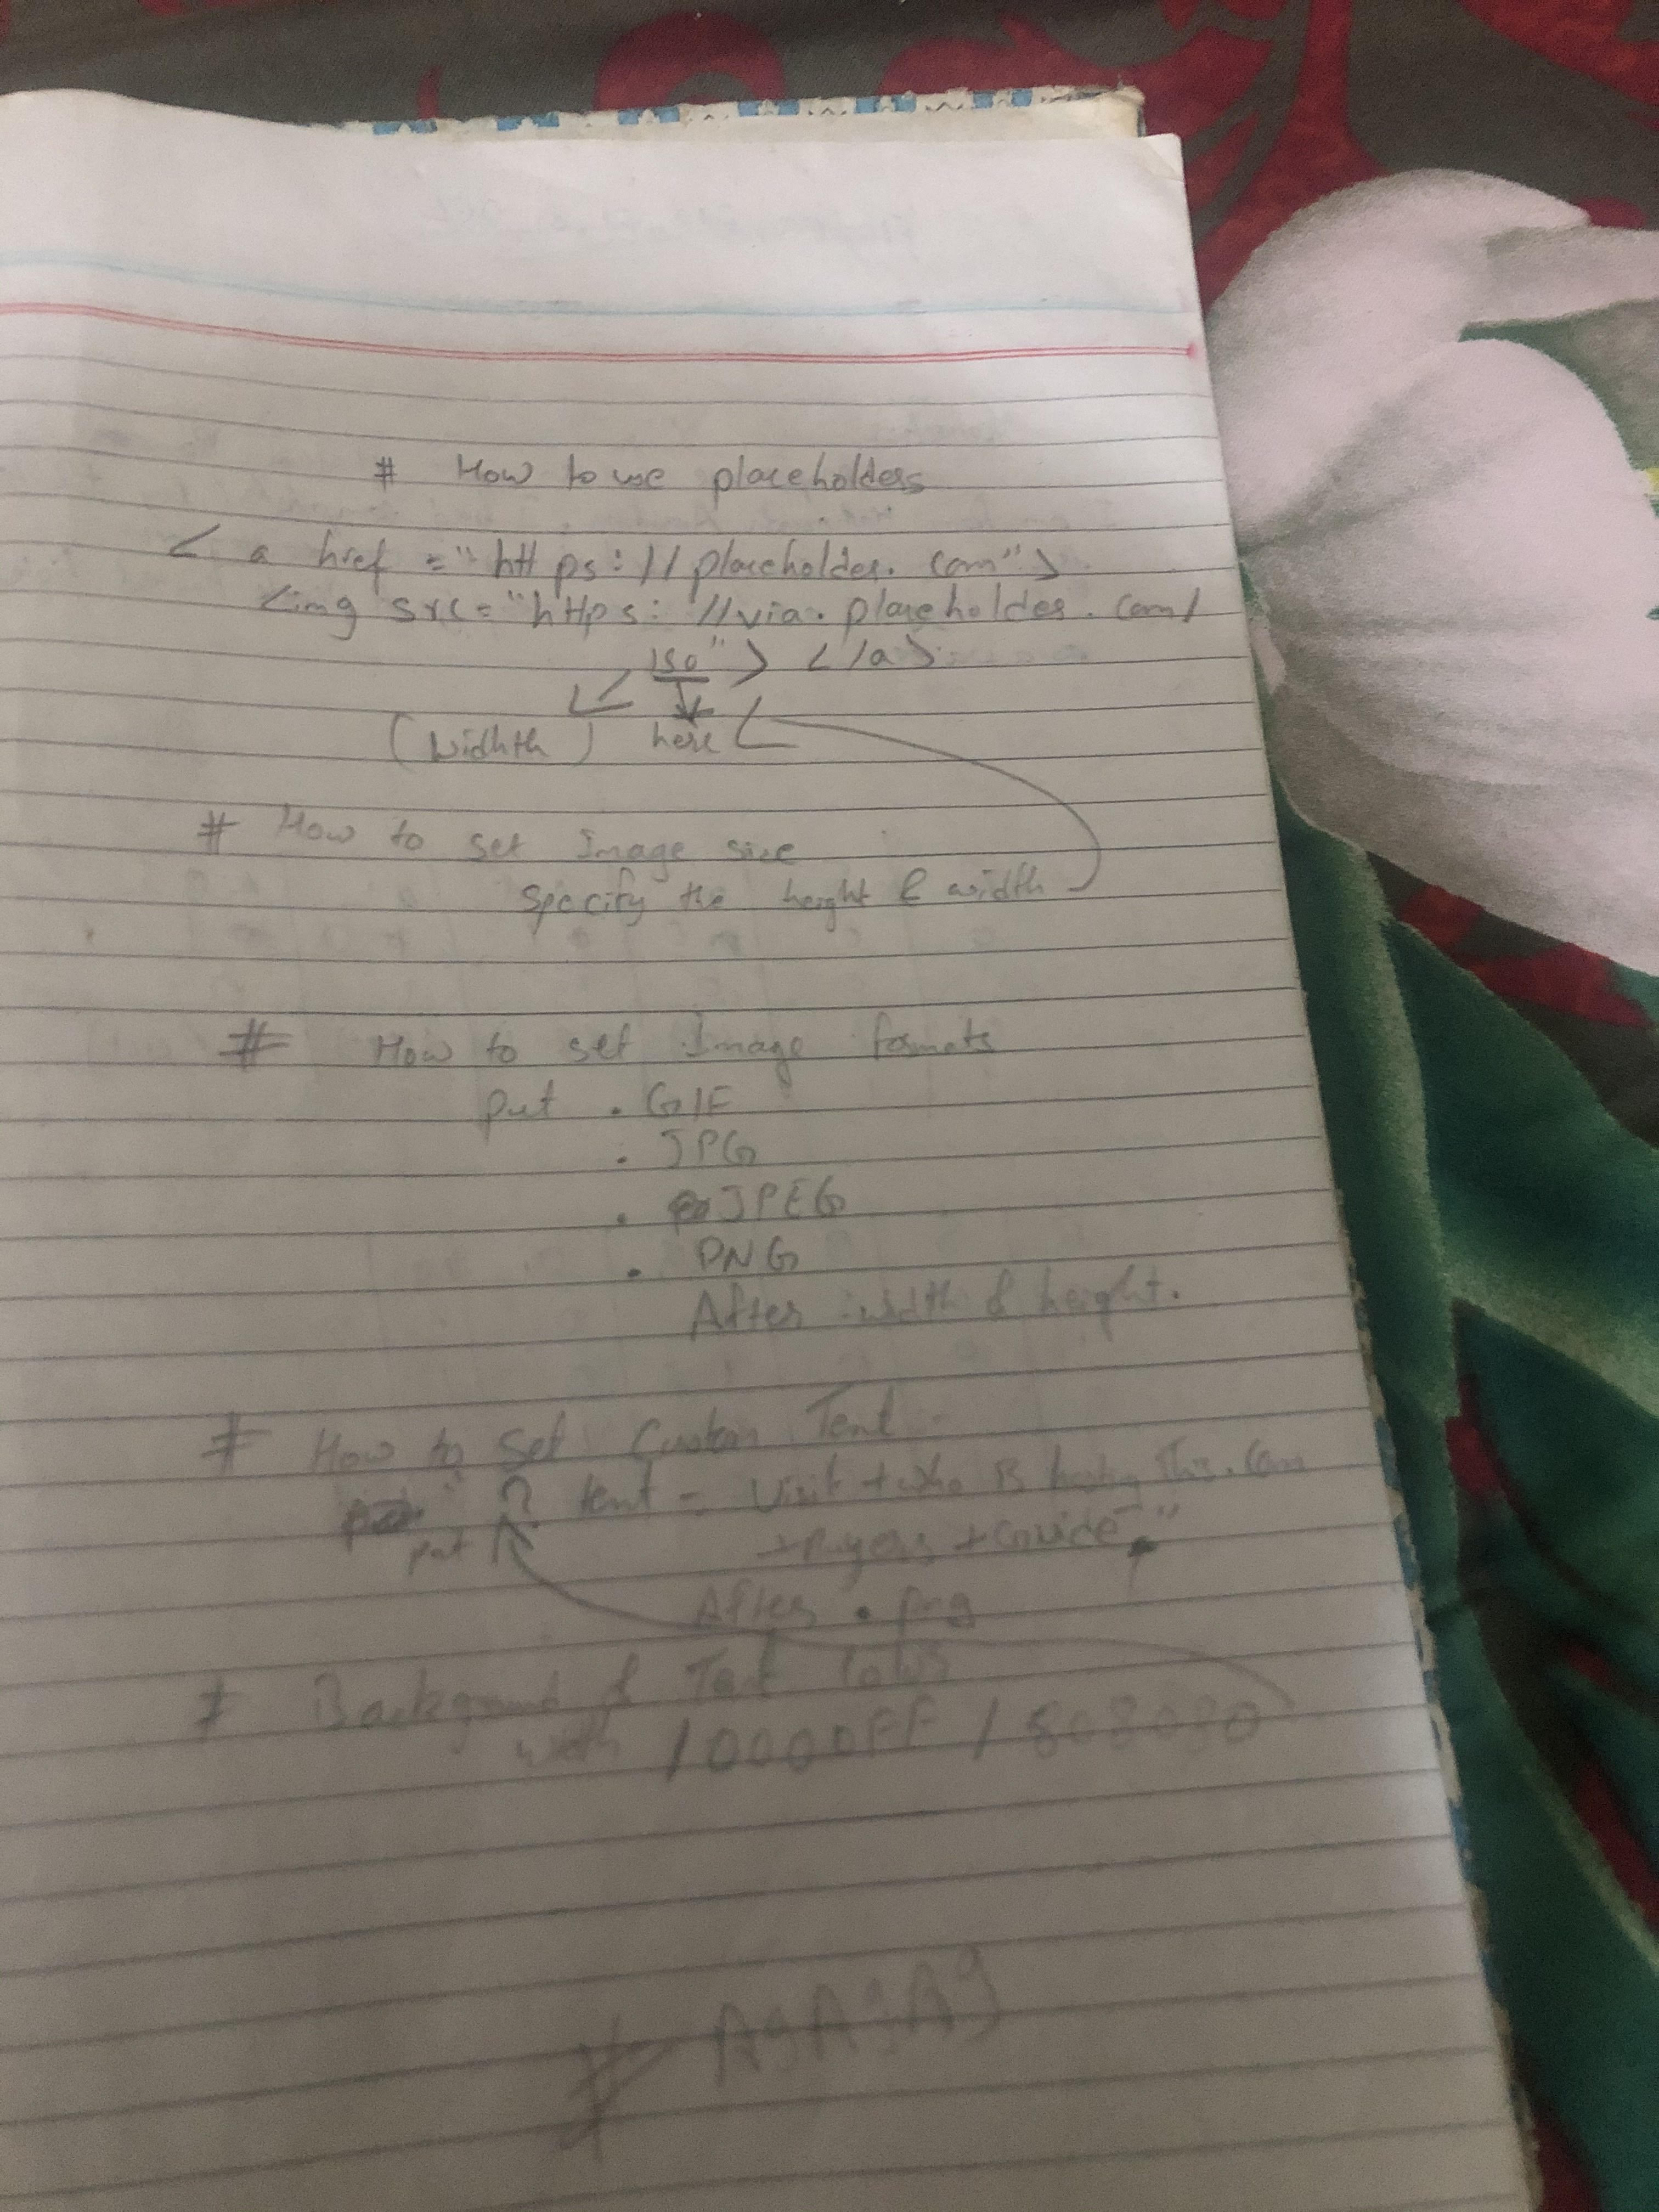 # How to use placeholders
< a href = "https://placeholder.com">
<img src="https://via.placeholder.com/
150"> </a>
(Widhth) here
# How to set Image size
specify the height & width
# How to set Image formats
put . GIF
. JPG
. JPEG
. PNG
After width & height.
# How to set Custom Text
put ? text = Visit +
+ Guide"
After . png
# Background & Text Colors
with /0000FF /808080
# A9A9A9